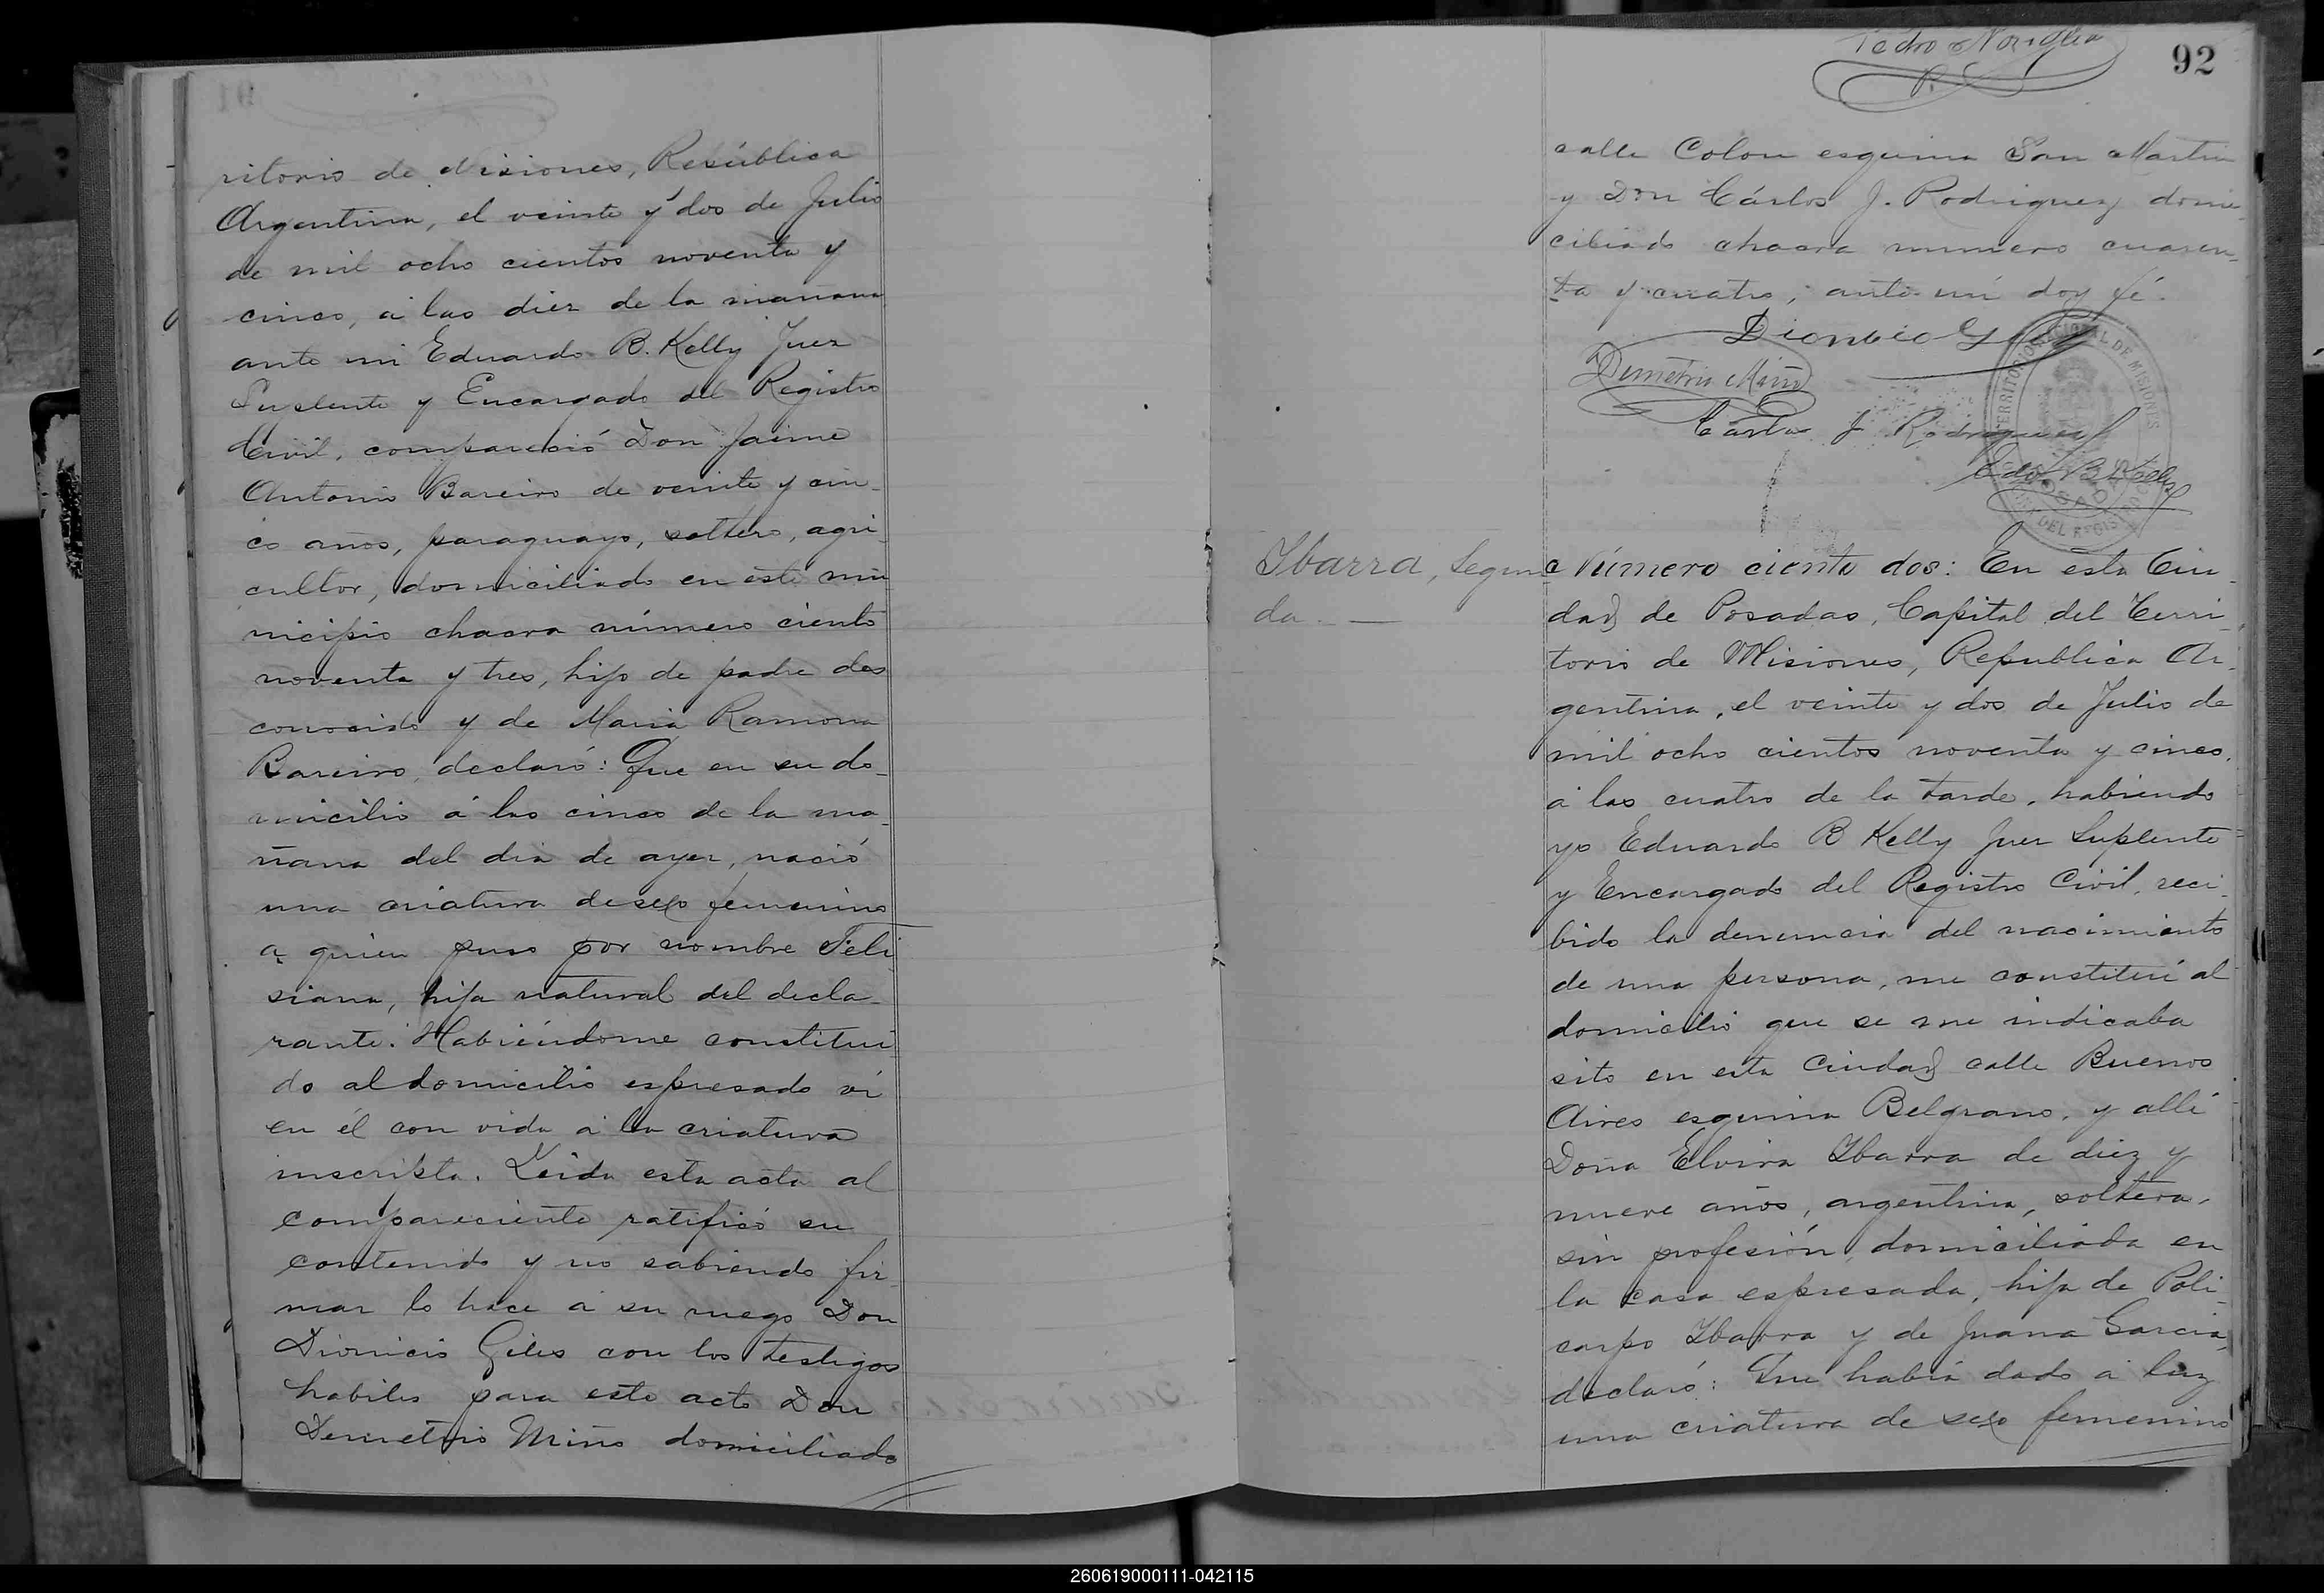 ritorio de Misiones, República
Argentina, el veinte y dos de Julio
de mil ocho cientos noventa y
cinco, á las diez de la mañana
ante mi Eduardo B. Kelly Juez
Suplente y Encargado del Registro
Civil, compareció Don Jaime
Antonio Bareiro de veinte y cin-
co años, paraguayo, soltero, agri-
cultor, domiciliado en éste mu
nicipio chacra número ciento
noventa y tres, hijo de padre des
conocido y de Maria Ramona
Bareiro, declaró: Que en su do-
micilio á las cinco de la ma-
ñana del dia de ayer, nació
una criatura de sexo femenino
a quien puso por nombre Feli
siana, hija natural del decla-
rante. Habiéndome constitui
do al domicilio espresado vi
en él con vida á la criatura
inscripta. Leida esta acta al
compareciente ratificó su
contenido y no sabiendo fir-
mar lo hace á su ruego Don
Dionicio Giles con los testigos
habiles para este acto Don
Demetrio Miño domiciliado
Pedro Noriglia
92
calle Colon esquina San Martin
y Don Cárlos J. Rodriguez domi-
ciliado chacra numero cuaren-
ta y cuatro; ante mí doy fé.
Dionicio G
Demetrio Miño
Carlos J Rodriguez
Edo. B Kelly
TERRITORIO NACIONAL DE MISIONES
POSADAS
DEL REGISTRO
Ybarra, Segun
da. —
Número ciento dos: En esta Ciu-
dad de Posadas, Capital del Terri-
torio de Misiones, Republica Ar-
gentina, el veinte y dos de Julio de
mil ocho cientos noventa y cinco,
á las cuatro de la tarde, habiendo
yo Eduardo B Kelly Juez Suplente
y Encargado del Registro Civil, reci-
bido la denuncia del nacimiento
de una persona, me constituí al
domicilio que se me indicaba
sito en esta Ciudad calle Buenos
Aires esquina Belgrano, y allí
Doña Elvira Ybarra de diez y
nueve años, argentina, soltera,
sin profesión, domiciliada en
la casa espresada, hija de Poli-
carpo Ybarra y de Juana Garcia,
declaró: Que habia dado á luz
una criatura de sexo femenino
260619000111-042115